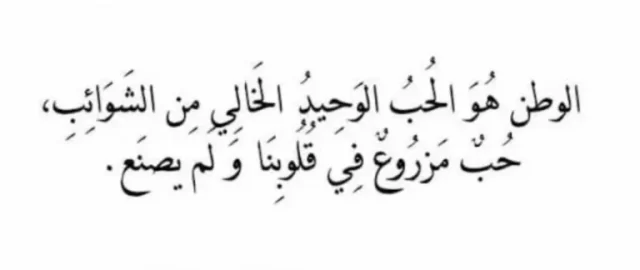 الوطن هُوَ الُحبُ الوَحِيدُ الَخَالِي مِن الشَوَائِبِ،
حُبٌ مَزرُوعٌ فِي قُلُوبِنَا وَ لَم يصنَع.